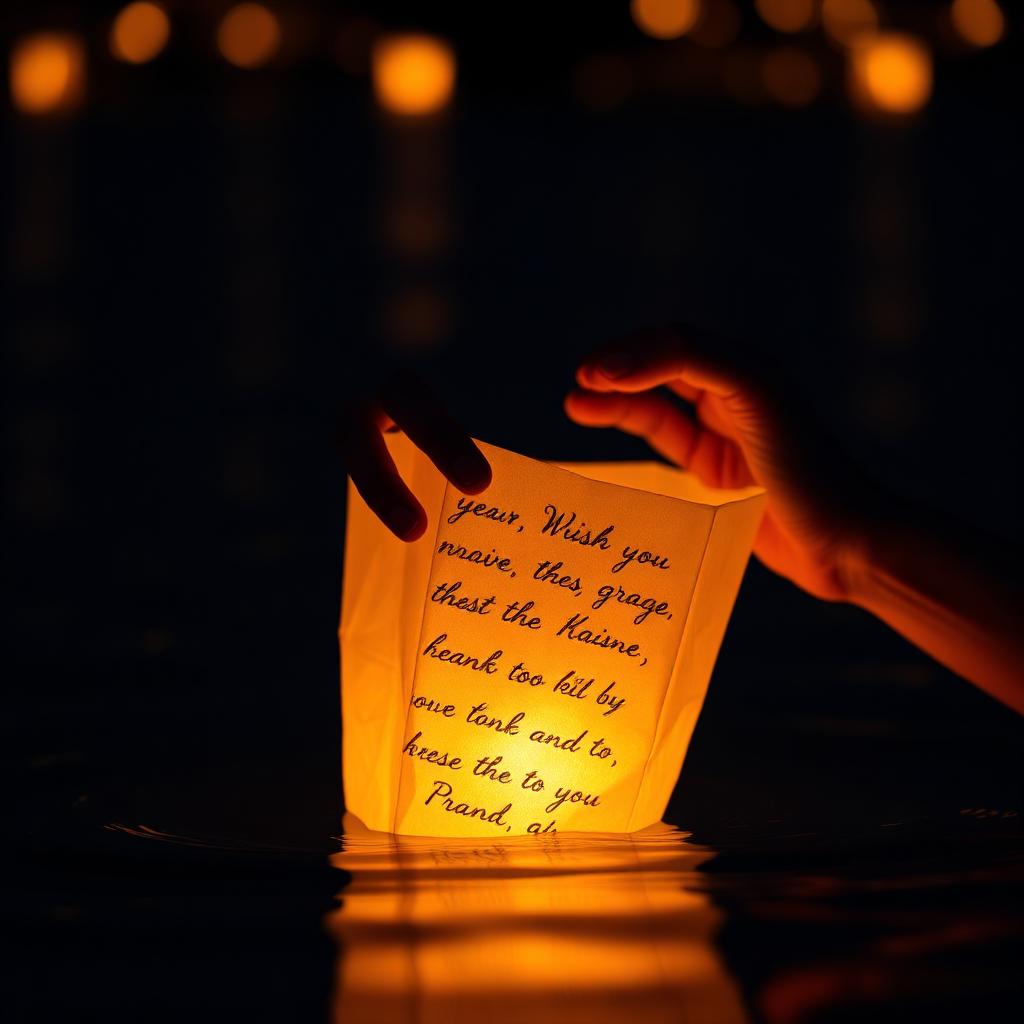 year, Wiish you
maive, thes, grage,
thest the Kaisne,
heank too kil by
oue tonk and to,
krese the to you
Prand,